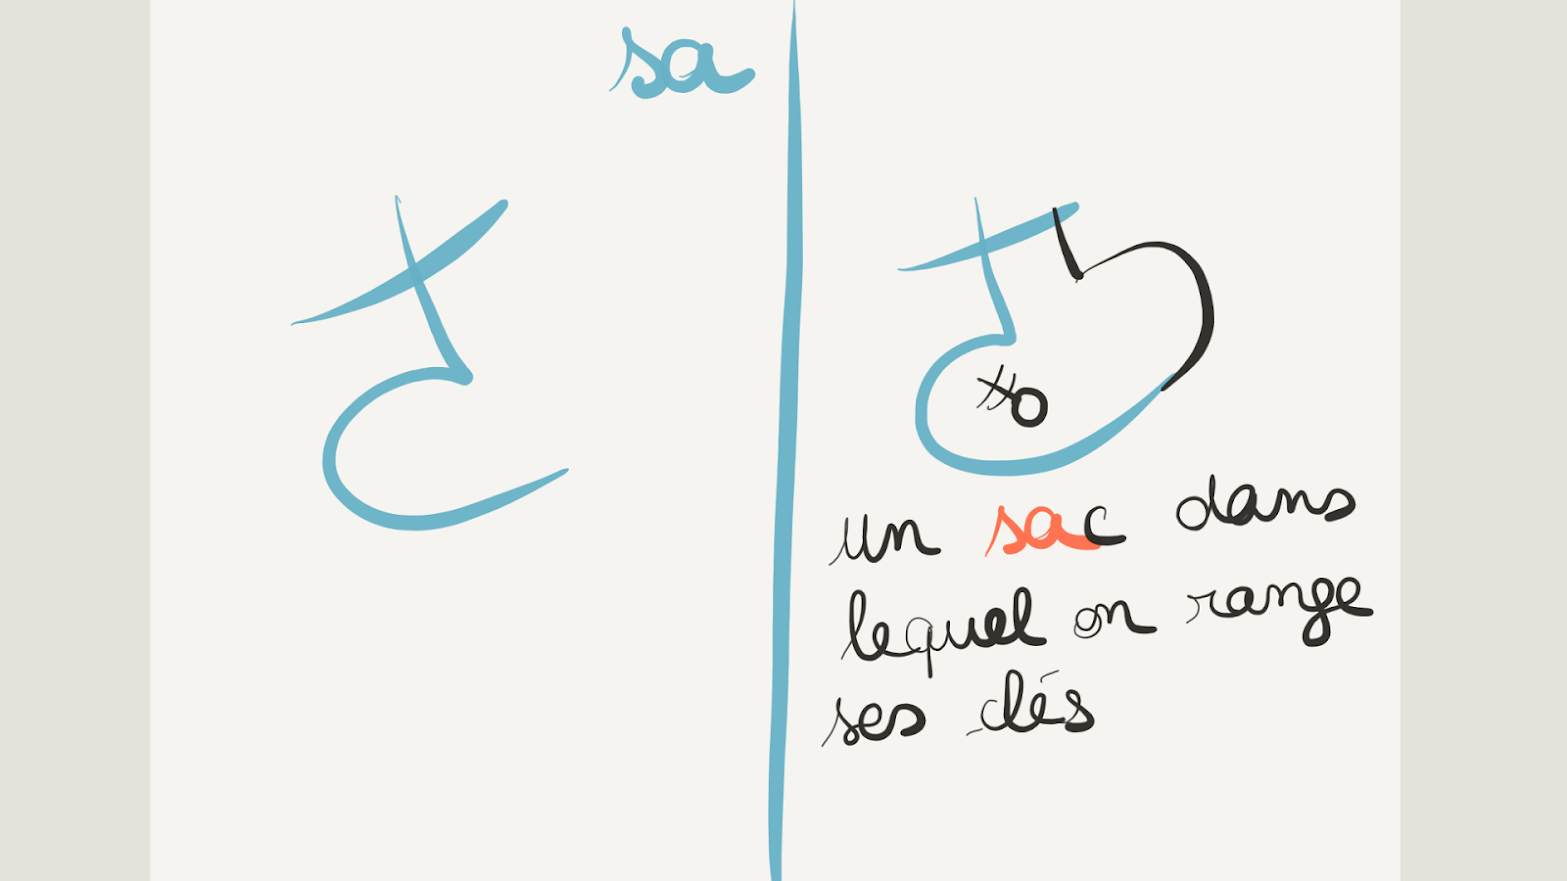 sa
さ
un sac dans
lequel on range
ses clés